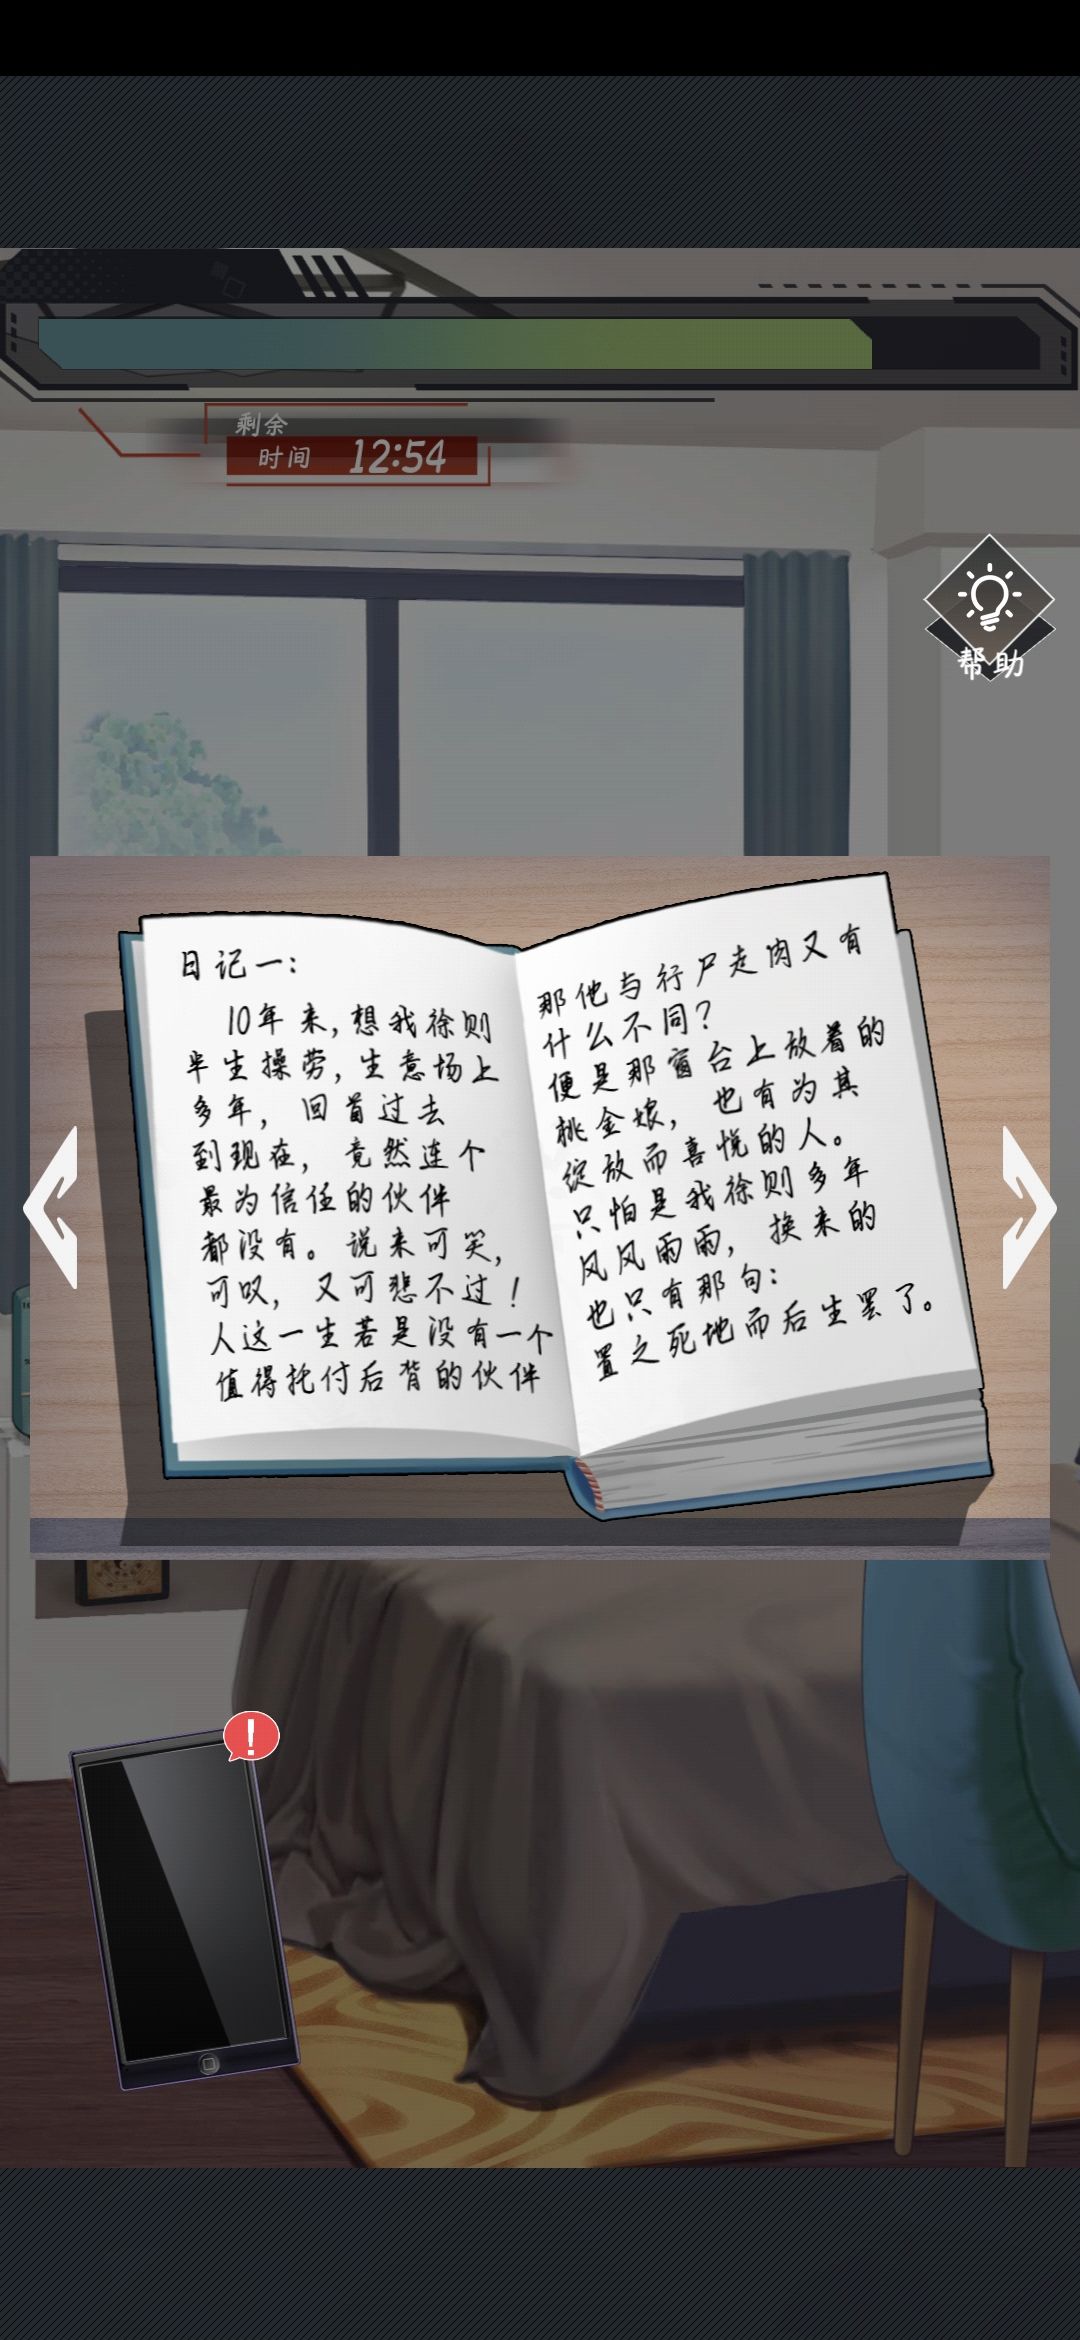 剩余
时间 12:54
帮助
日记一：
10年来，想我徐则
半生操劳，生意场上
多年，回首过去
到现在，竟然连个
最为信任的伙伴
都没有。说来可笑，
可叹，又可悲不过！
人这一生若是没有一个
值得托付后背的伙伴
那他与行尸走肉又有
什么不同？
便是那窗台上放着的
桃金娘，也有为其
绽放而喜悦的人。
只怕是我徐则多年
风风雨雨，换来的
也只有那句：
置之死地而后生罢了。
!